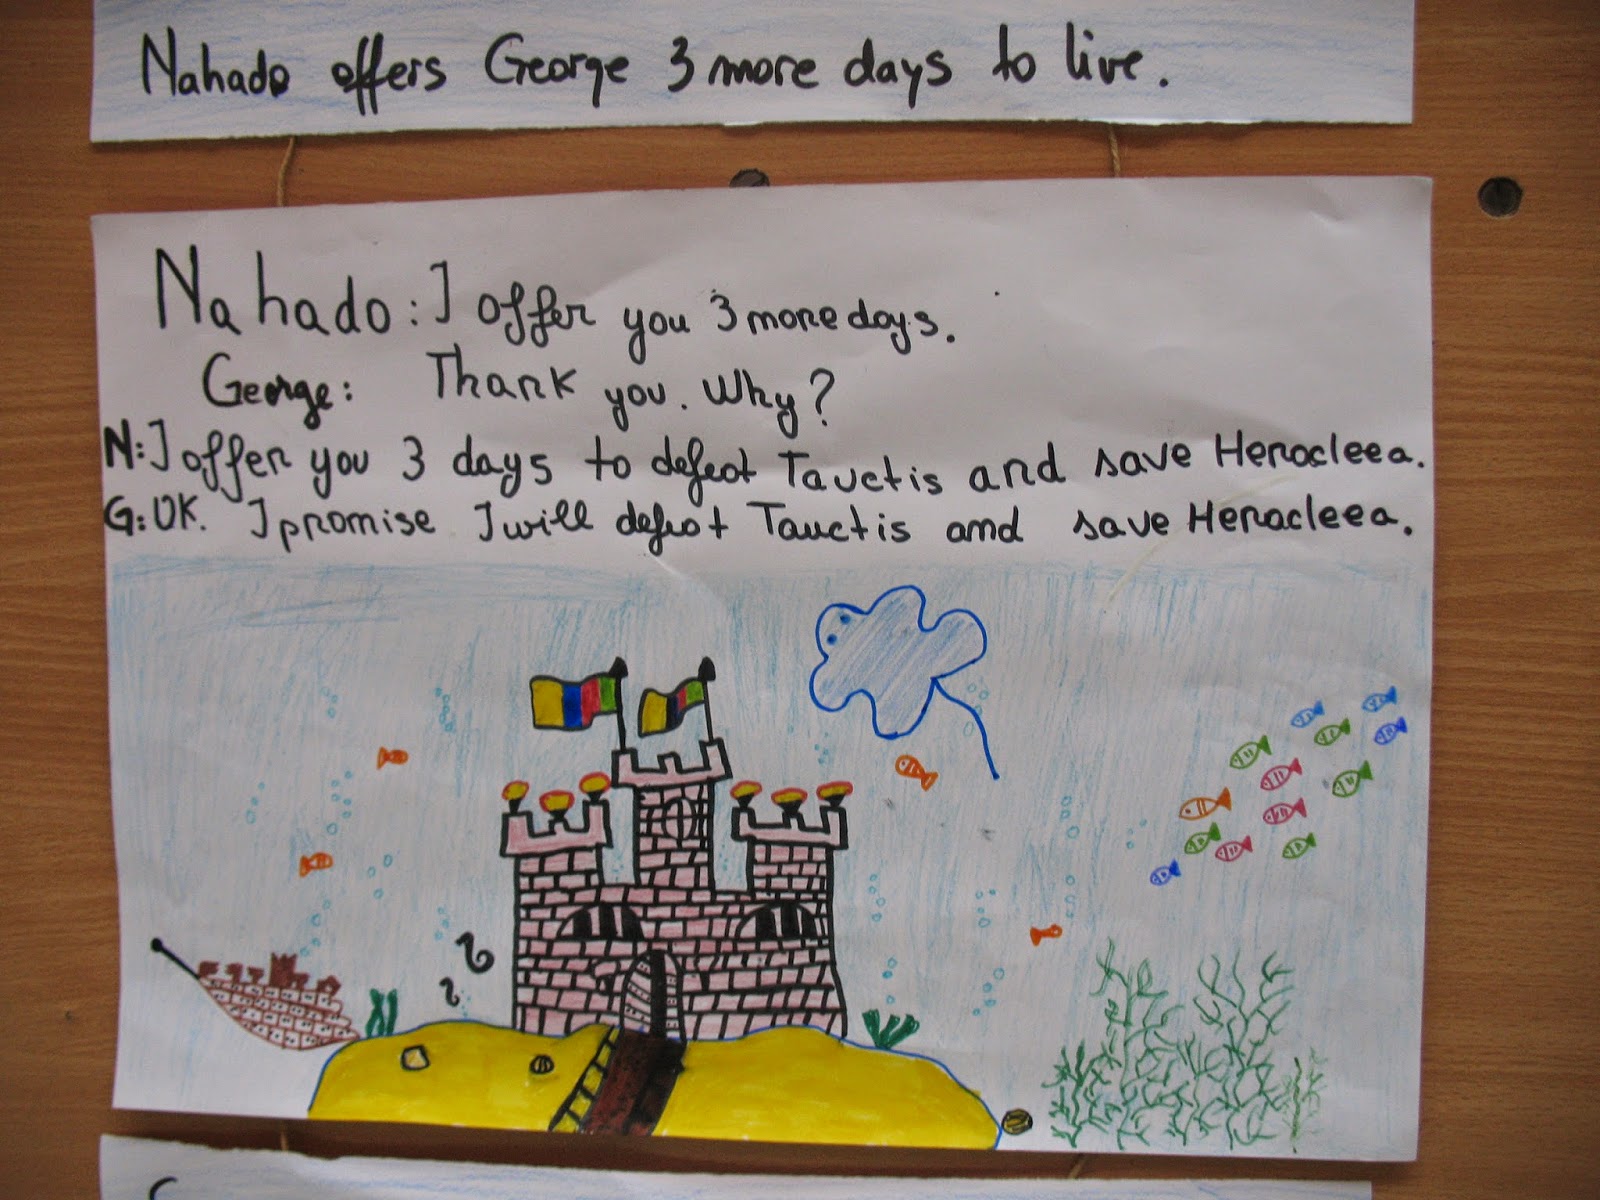 Nahado offers George 3 more days to live.
Nahado: I offer you 3 more days.
George: Thank you. Why?
N: I offer you 3 days to defeat Tauctis and save Heracleea.
G: OK. I promise I will defeat Tauctis and save Heracleea.